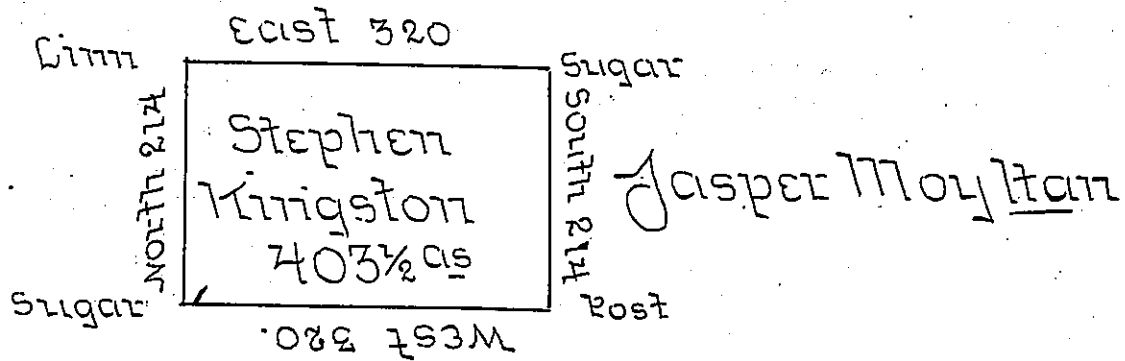 East 320
Linn
Sugar
North 214
Stephen
Kingston
403½ as
South 214
Jasper Moyltan
Sugar
Post
West 320.